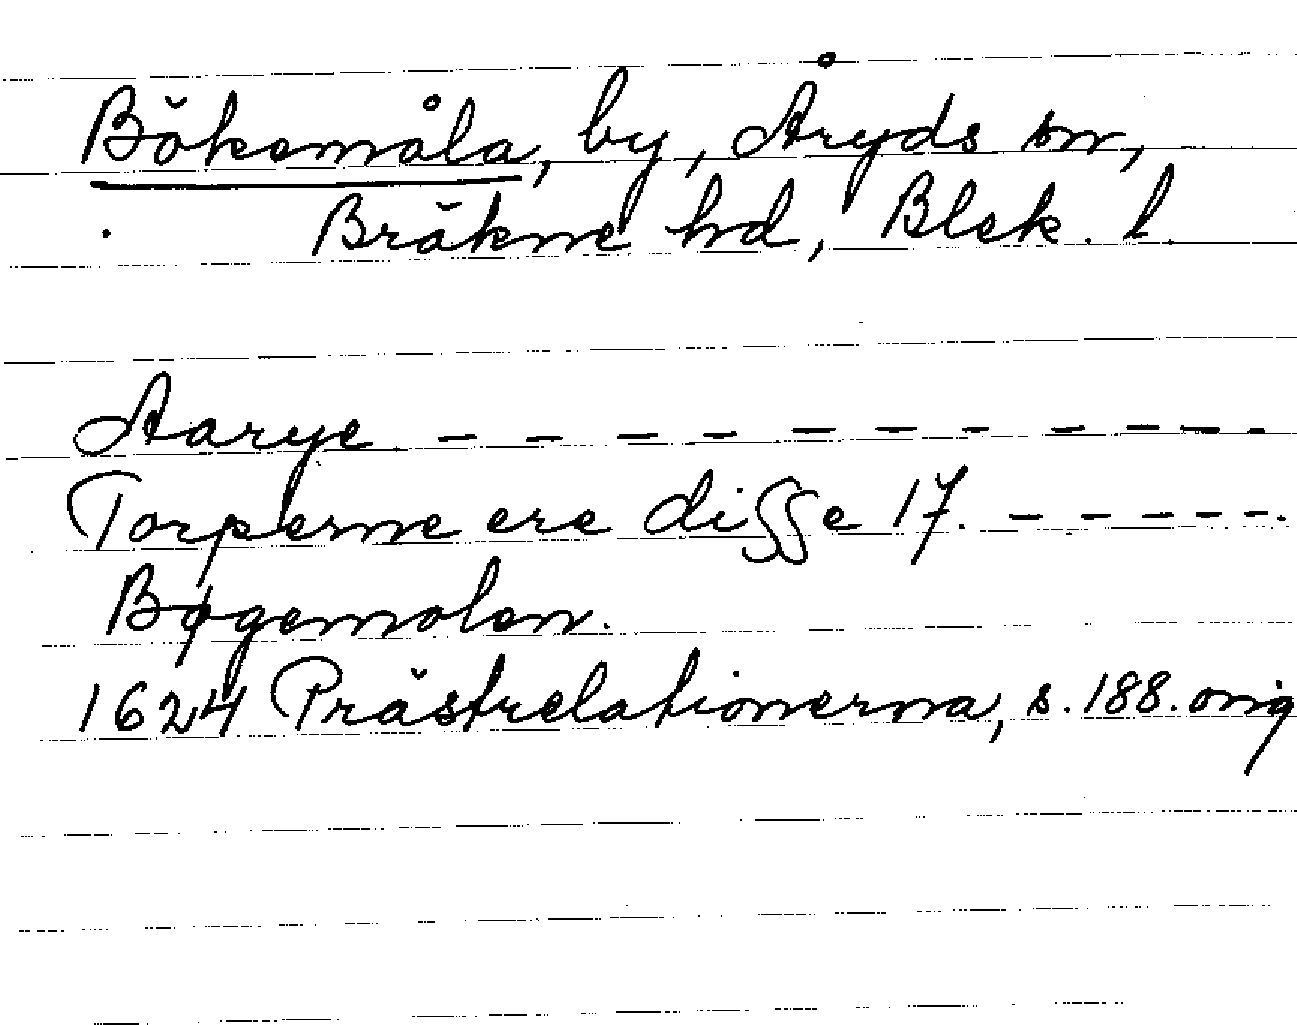 Bökemåla, by, Åryds sn,
Bräkne hd, Blek. l.
Aarye - - - - - - - - - -
Torperne ere disse 17. - - - - -.
Bøgemolen.
1624 Prästrelationerna, s. 188. orig